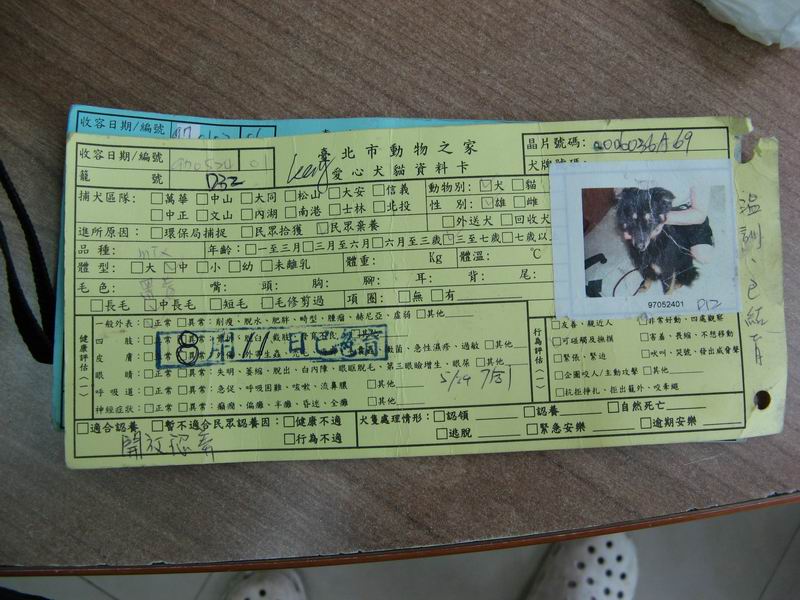 收容日期/編號
收容日期/編號
籠 號 D32
臺北市動物之家
愛心犬貓資料卡
晶片號碼:
犬牌號碼:
捕犬區隊: □萬華 □中山 □大同 □松山 □大安 □信義
□中正 □文山 □內湖 □南港 □士林 □北投
動物別: ☑犬 □貓
性 別: ☑雄 □雌
進所原因: □環保局捕捉 □民眾拾獲 ☑民眾棄養 □外送犬 □回收犬
品 種: mix 年齡: □一至三月 □三月至六月 □六月至三歲 ☑三至七歲 □七歲以
體 型: □大 ☑中 □小 □幼 □未離乳 體重: Kg 體溫: ℃
毛 色: 嘴: 頭: 胸: 腳: 耳: 背: 尾:
□長毛 ☑中長毛 □短毛 □毛修剪過 項 圈: □無 □有
97052401
D12
健康評估(一)
一般外表: ☑正常 □異常: 削瘦、脫水、肥胖、畸型、腫瘤、赫尼亞、虛弱 □其他
四 肢:
皮 膚: 黴菌、急性濕疹、過敏 □其他
眼 睛: □正常 □異常: 失明、萎縮、脫出、白內障、眼眶脫毛、第三眼瞼增生、眼屎 □其他
呼吸道: □正常 □異常: 急促、呼吸困難、咳嗽、流鼻膿 □其他
神經症狀: □正常 □異常: 癲癇、偏癱、半癱、昏迷、全癱 □其他
8月
行為評估(一)
□友善、親近人 □非常好動、四處觀察
□可碰觸推撫摸 □害羞、畏縮、不想移動
□緊張、緊迫 □吠叫、哭號、發出威脅聲
□企圖咬人/主動攻擊 □其他
□抗拒掙扎、拒出籠外、咬牽繩
□適合認養 □暫不適合民眾認養因: □健康不適
□行為不適
開放認養
犬隻處理情形: □認領 □認養 □自然死亡
□逃脫 □緊急安樂 □逾期安樂
溫馴、已結育